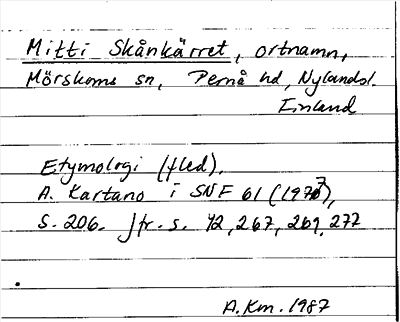 Mitti Skånkärret, ortnamn,
Mörskoms sn, Pernå hd, Nylandsl.
Finland
Etymologi (fled).
A. Kartano i SNF 61 (1977),
S. 206. Jfr. s. 42, 267, 269, 277
A.Km. 1987